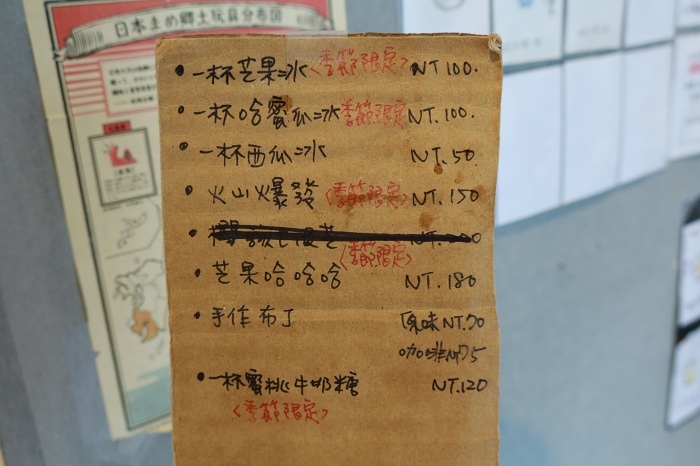 日本まめ郷土玩具分布図
• 一杯芒果冰〈季節限定〉 NT 100.
• 一杯哈蜜瓜冰季節限定 NT. 100.
• 一杯西瓜冰 NT. 50
• 火山爆發〈季節限定〉 NT. 150
〈季節限定〉
• 芒果哈哈哈 NT. 180
• 手作布丁 原味NT.70
咖啡NT75
• 一杯蜜桃牛奶糖 NT.120
〈季節限定〉